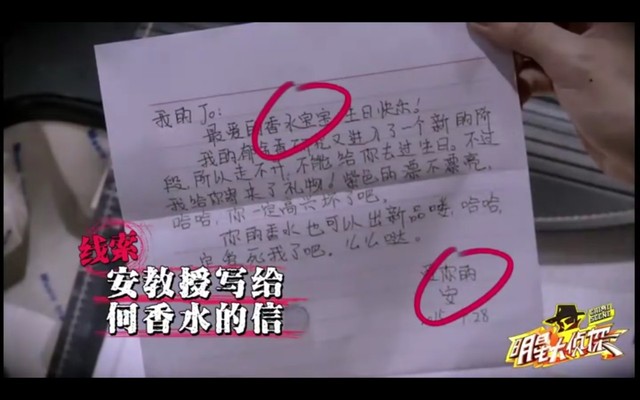 我的Jo:
最爱的香水宝宝生日快乐!
我的郁金香研究又进入了一个新的阶
段,所以走不开,不能给你去过生日。不过
我给你寄来了礼物!紫色的漂不漂亮,
哈哈,你一定高兴坏了吧。
你的香水也可以出新品喽,哈哈,
定爱死我了吧。么么哒。
爱你的
安
.28
线索
安教授写给
何香水的信
CRIME SCENE
明星大侦探